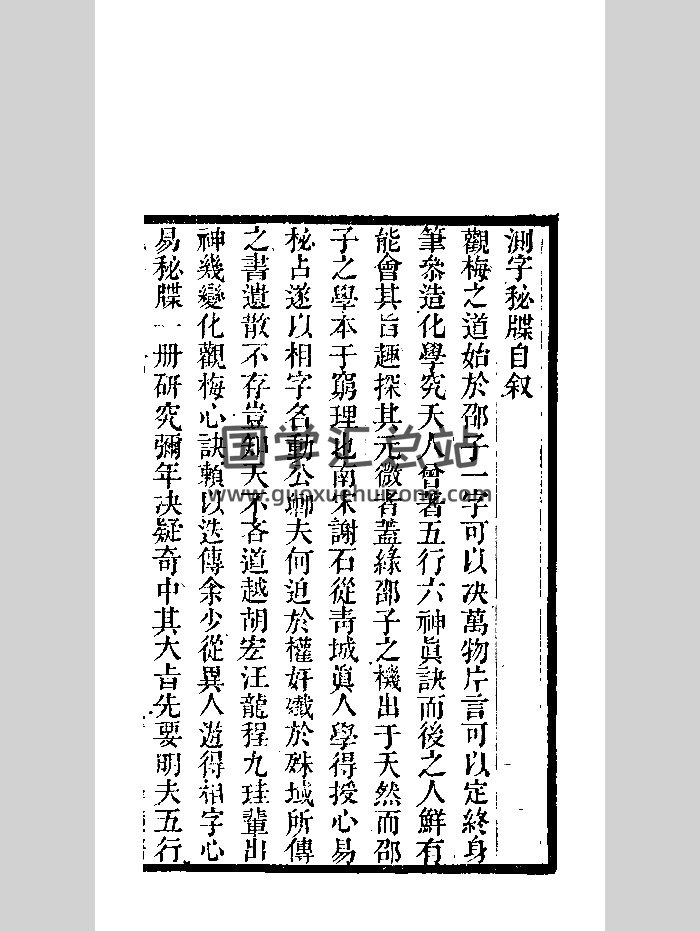 測字秘牒自叙
觀梅之道始於邵子一字可以决萬物片言可以定終身
筆叅造化學究天人曾著五行六神眞訣而後之人鮮有
能會其旨趣探其元微者蓋緣邵子之機出于天然而邵
子之學本于窮理也南宋謝石從靑城眞人學得授心易
秘占遂以相字名動公卿夫何迫於權奸殲於殊域所傳
之書遺散不存豈知天不吝道越胡宏汪龍程九珪輩出
神幾變化觀梅心訣賴以迭傳余少從異人遊得相字心
易秘牒一册研究彌年决疑奇中其大旨先要明夫五行
国学汇总站
www.guoxuehuizong.com